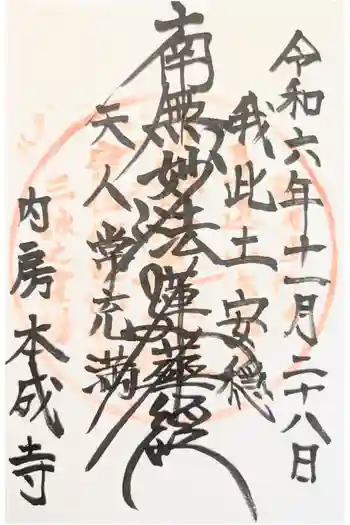 令和六年十一月二十八日
我此土安穏
南無妙法蓮華経
天人常充満
内房 本成寺